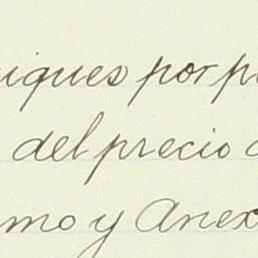 iques por p
del precio
mo y Anex